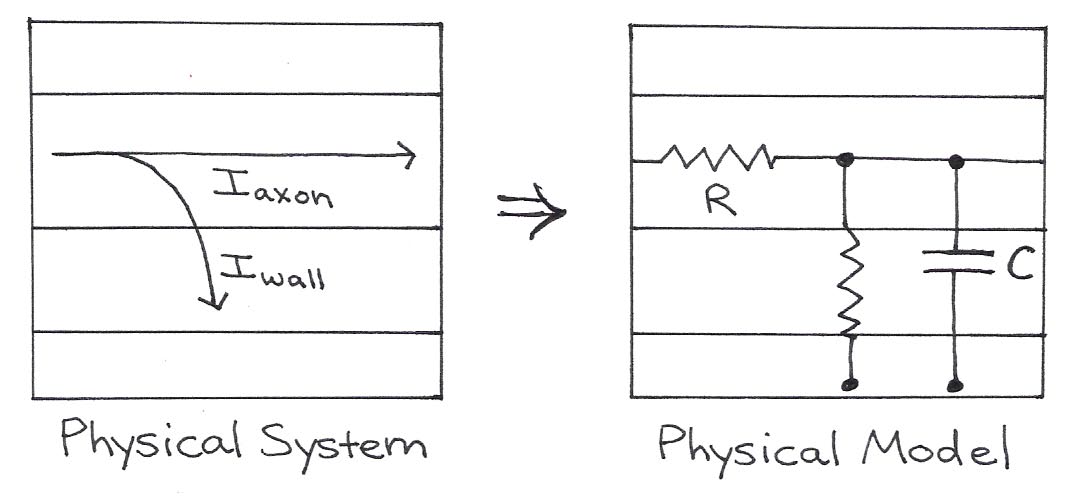 I axon
I wall
Physical System
R
C
Physical Model